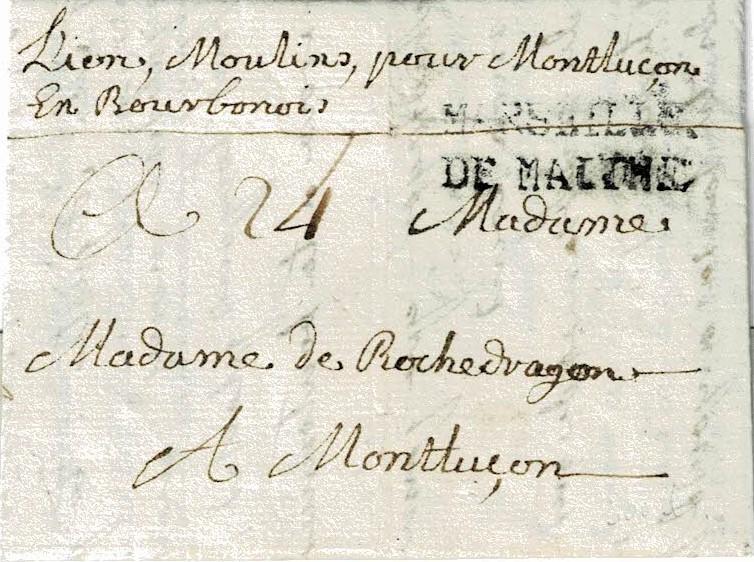 Lion, Moulins, pour Montluçon
En Bourbonois
MARSEILLE
DE MALTHE
A 24 Madame
Madame de Rochedragon
A Montluçon